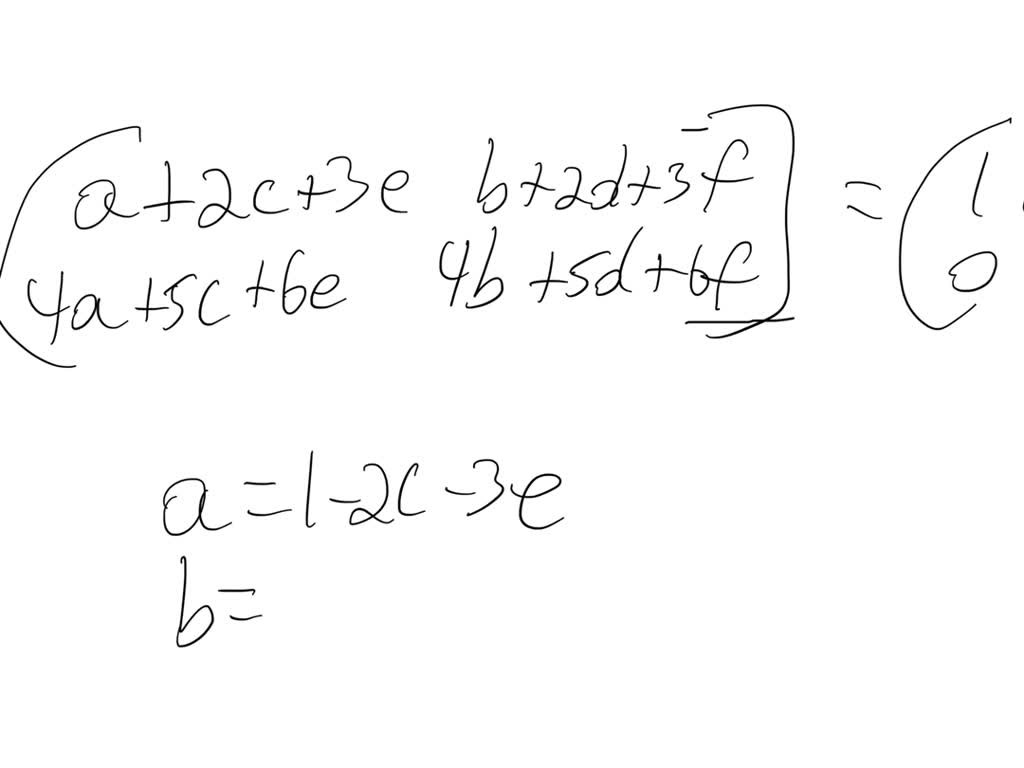 a+2c+3e b+2d+3f = 1
4a+5c+6e 4b+5d+6f 0
a=1-2c-3e
b=